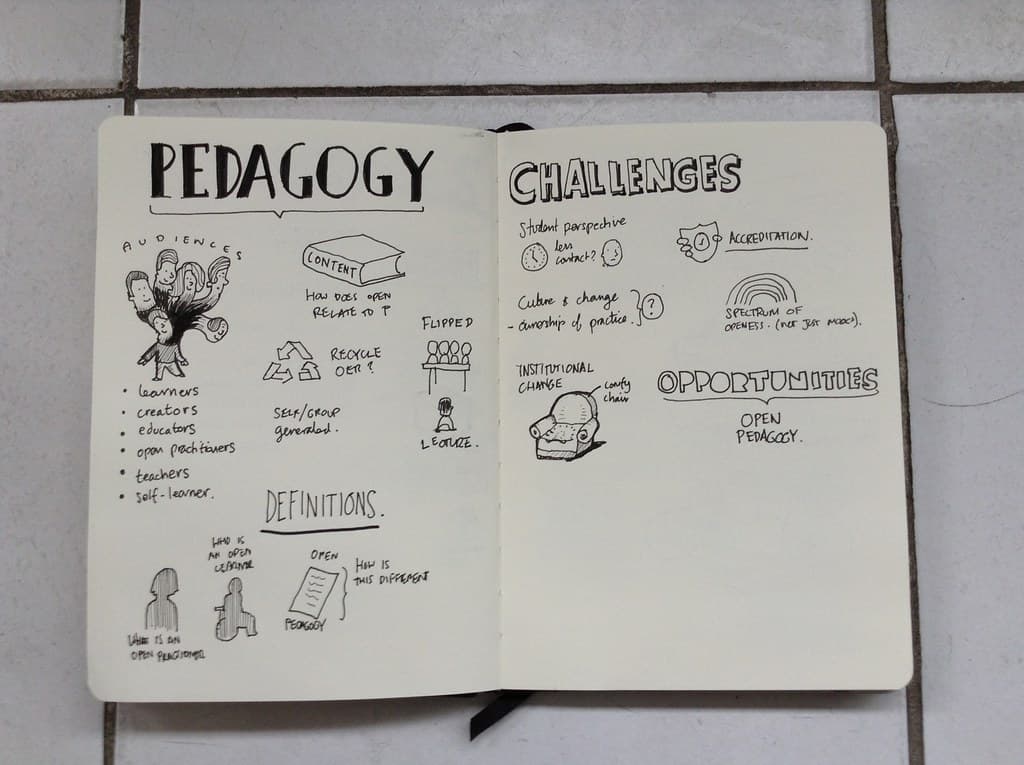 PEDAGOGY
AUDIENCES
• learners
• creators
• educators
• open practitioners
• teachers
• self-learner.
CONTENT
HOW DOES OPEN
RELATE TO ?
RECYCLE
OER?
SELF/GROUP
generated.
FLIPPED
LECTURE.
DEFINITIONS.
WHO IS
AN OPEN
LEARNER
IS AN
OPEN
OPEN
PEDAGOGY
HOW IS
THIS DIFFERENT
CHALLENGES
Student perspective
less
contact?
ACCREDITATION.
Culture & change
- ownership of practice.
?
SPECTRUM OF
OPENESS. (NOT JUST MOOCs).
INSTITUTIONAL
CHANGE
comfy
chair
OPPORTUNITIES
OPEN
PEDAGOGY.